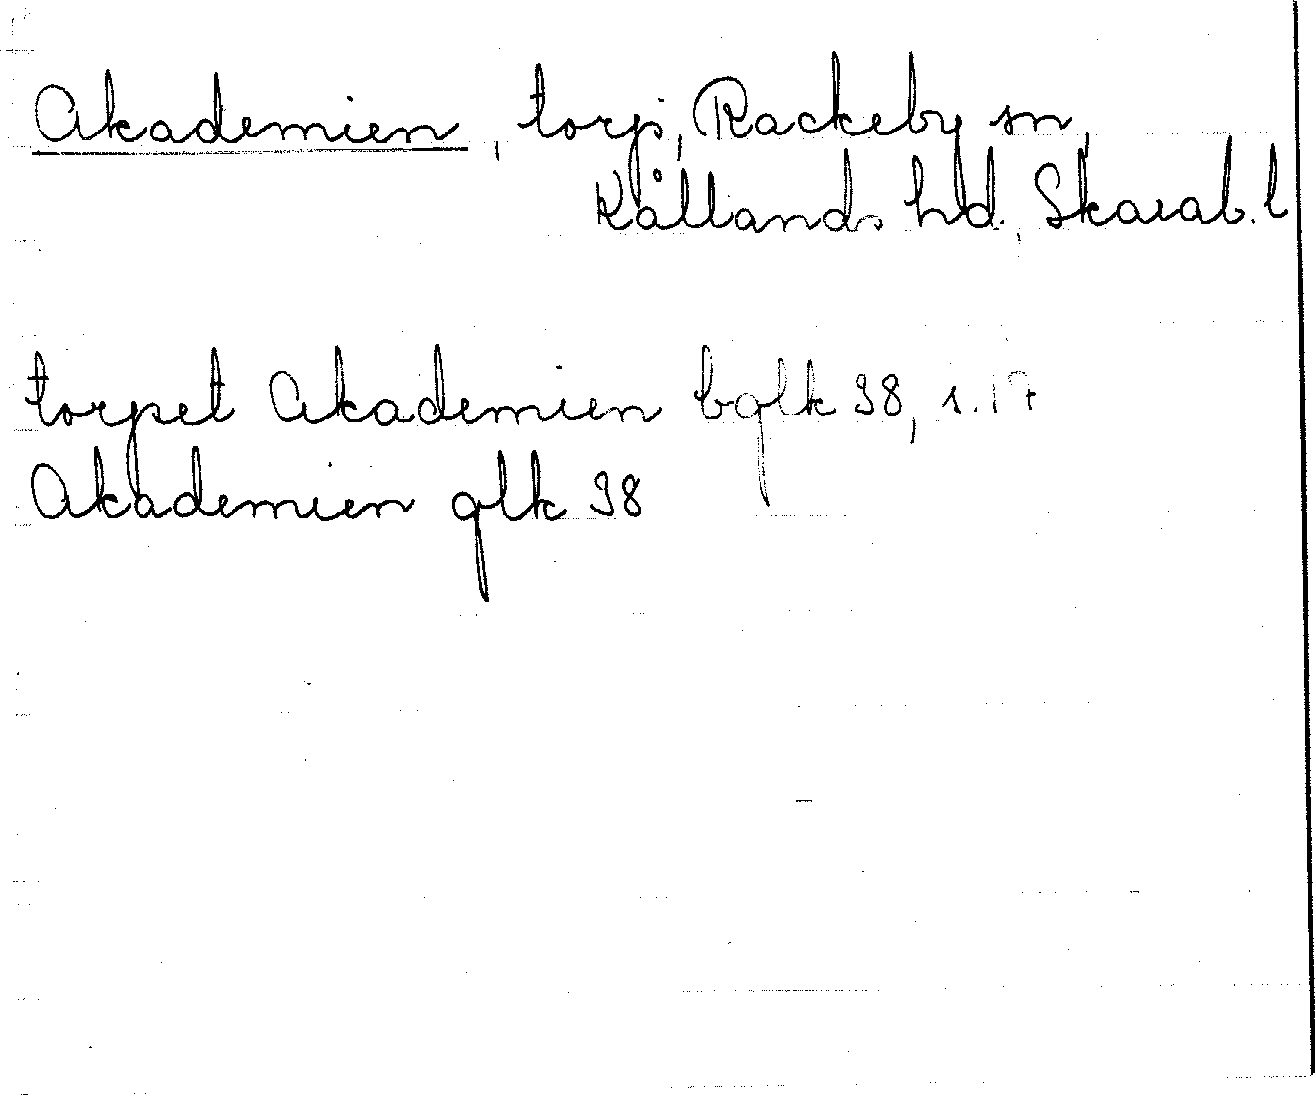 Akademien, torp, Rackeby sn,
Kållands hd. Skarab. l
torpet Akademien bglk 98, s. 17
Akademien glk 98